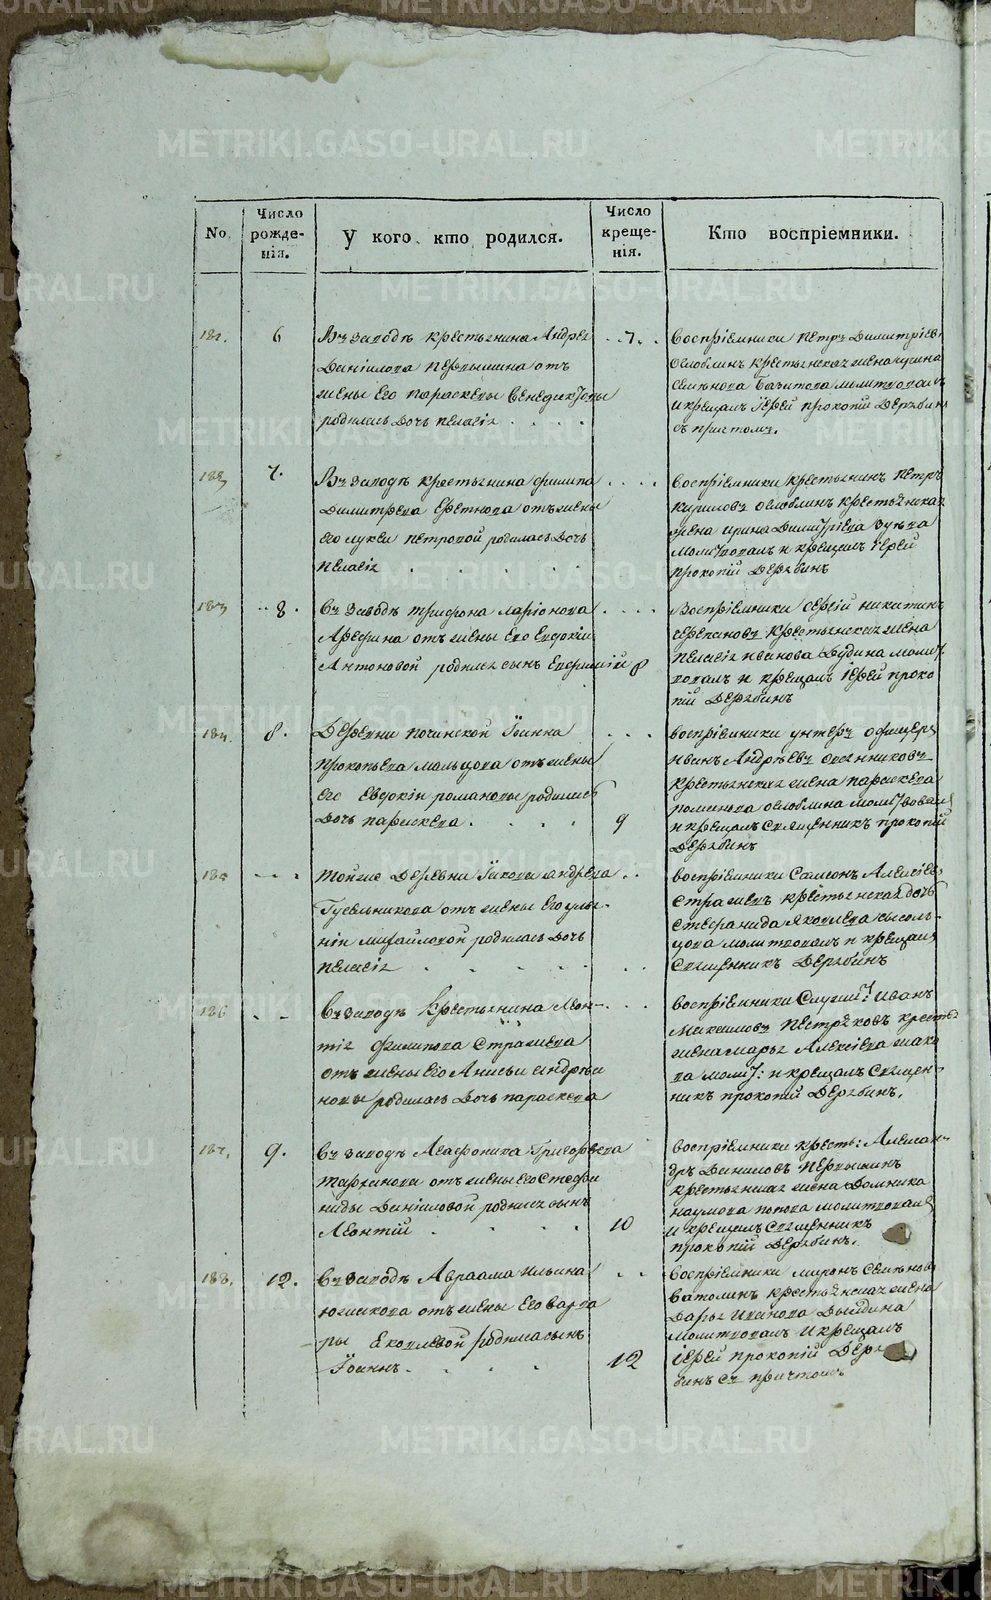 No.
Число рожде-нія.
У кого кто родился.
Число креще-нія.
Кто воспріемники.
181. 6
Въ заводѣ крестьянина Андрея
Даніилова Первышина отъ
жены его Параскевы Венедиктовы
родилась дочь Пелагія
7.
воспріемники Петръ Димитріевъ
крестьянская жена Ирина
Семенова молитвовалъ
и крещалъ іерей Прокопій Дерябинъ
съ причтомъ.
182 7.
Въ заводѣ крестьянина Филипа
Димитрева отъ жены
его Лукеи Петровой родилась дочь
Пелагія
воспріемники крестьянинъ Петръ
Кириловъ крестьянская
жена Ирина Димитріева Зуева
молитвовалъ и крещалъ іерей
Прокопій Дерябинъ
183 8.
въ заводѣ Трифона Ларіонова
Арефина отъ жены его Евдокіи
Антоновой родился сынъ Евфимій 8
Воспріемники Сергій Никитинъ
крестьянская жена
Пелагія Иванова молит
вовалъ и крещалъ іерей Проко
пій Дерябинъ
184. 8.
Деревни Починской Іоанна
Прокопьева Мальцова отъ жены
его Евдокіи Романовы родилась
дочь Параскева
9
воспріемники унтеръ офицеръ
Иванъ Андреевъ Овсянниковъ
крестьянская жена Параскева
молитвовалъ
и крещалъ священникъ Прокопій
Дерябинъ
185
тойже деревни Іякова Андрева
Гусельникова отъ жены его Улья-
ніи Михайловой родилась дочь
Пелагія
воспріемники Самсонъ Алексіевъ
Стражевъ крестьянская дочь
Стефанида Яковлева Сысоль-
цова молитвовалъ и крещалъ
священникъ Дерябинъ
186
въ заводѣ крестьянина Леон-
тія Филипова Стражева
отъ жены его Анисьи Андреи
новы родилась дочь Параскева
воспріемники служит: Иванъ
Максимовъ Пестряковъ крестьян
жена Марья Алексіева
ва молит: и крещалъ священ-
никъ Прокопій Дерябинъ.
187. 9.
въ заводѣ Агафоника Григорьева
Тарханова отъ жены его Стефа
ниды Даніиловой родился сынъ
Леонтій
10
воспріемники кресть: Алексан-
дръ Даниловъ Первышинъ
крестьянская жена Домника
Наумова Попова молитвовалъ
и крещалъ священникъ
Прокопій Дерябинъ.
188. 12.
въ заводѣ Авраама Ильина
Южакова отъ жены его Варва
ры Яковлевой родился сынъ
Іоаннъ
12
воспріемники Миронъ Семеновъ
Ватолинъ крестьянская жена
Дарья Иванова
молитвовалъ и крещалъ
іерей Прокопій Деря
бинъ съ причтомъ
METRIKI.GASO-URAL.RU